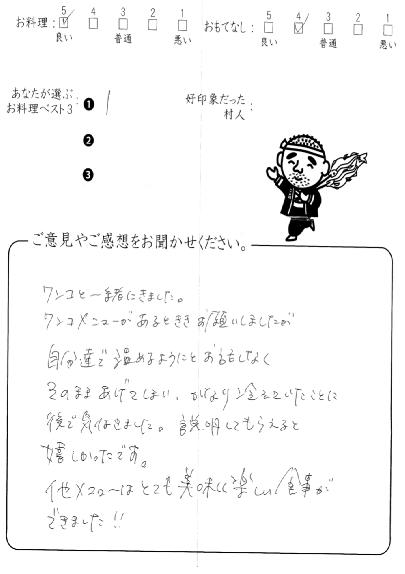 お料理: 5 4 3 2 1
良い 普通 悪い
おもてなし: 5 4 3 2 1
良い 普通 悪い
あなたが選ぶ
お料理ベスト3:
❶
❷
❸
好印象だった
村人:
ご意見やご感想をお聞かせください。
ワンコと一緒にきました。
ワンコメニューがあるとききお願いしましたが
自分達で温めるようにとお話しなく
そのままあげてしまい、かなり冷えていたことに
後で気付きました。説明してもらえると
嬉しかったです。
他メニューはとても美味しく楽しい食事が
できました!!